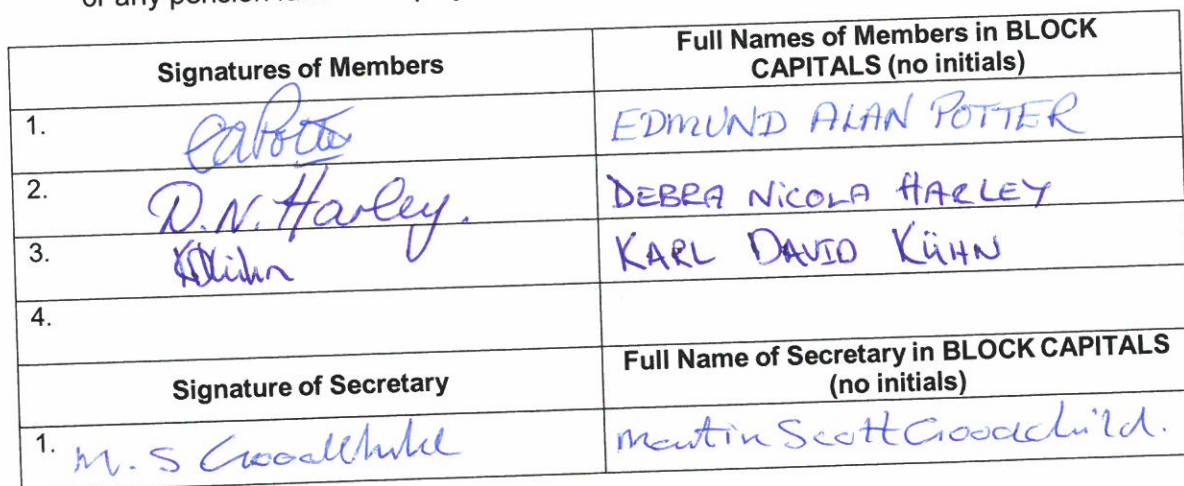 or any pension
Signatures of Members Full Names of Members in BLOCK CAPITALS (no initials)
1. EAPotter EDMUND ALAN POTTER
2. D.N. Harley. DEBRA NICOLA HARLEY
3. KDKühn KARL DAVID KÜHN
4.
Signature of Secretary Full Name of Secretary in BLOCK CAPITALS (no initials)
1. M. S Goodchild Martin Scott Goodchild.